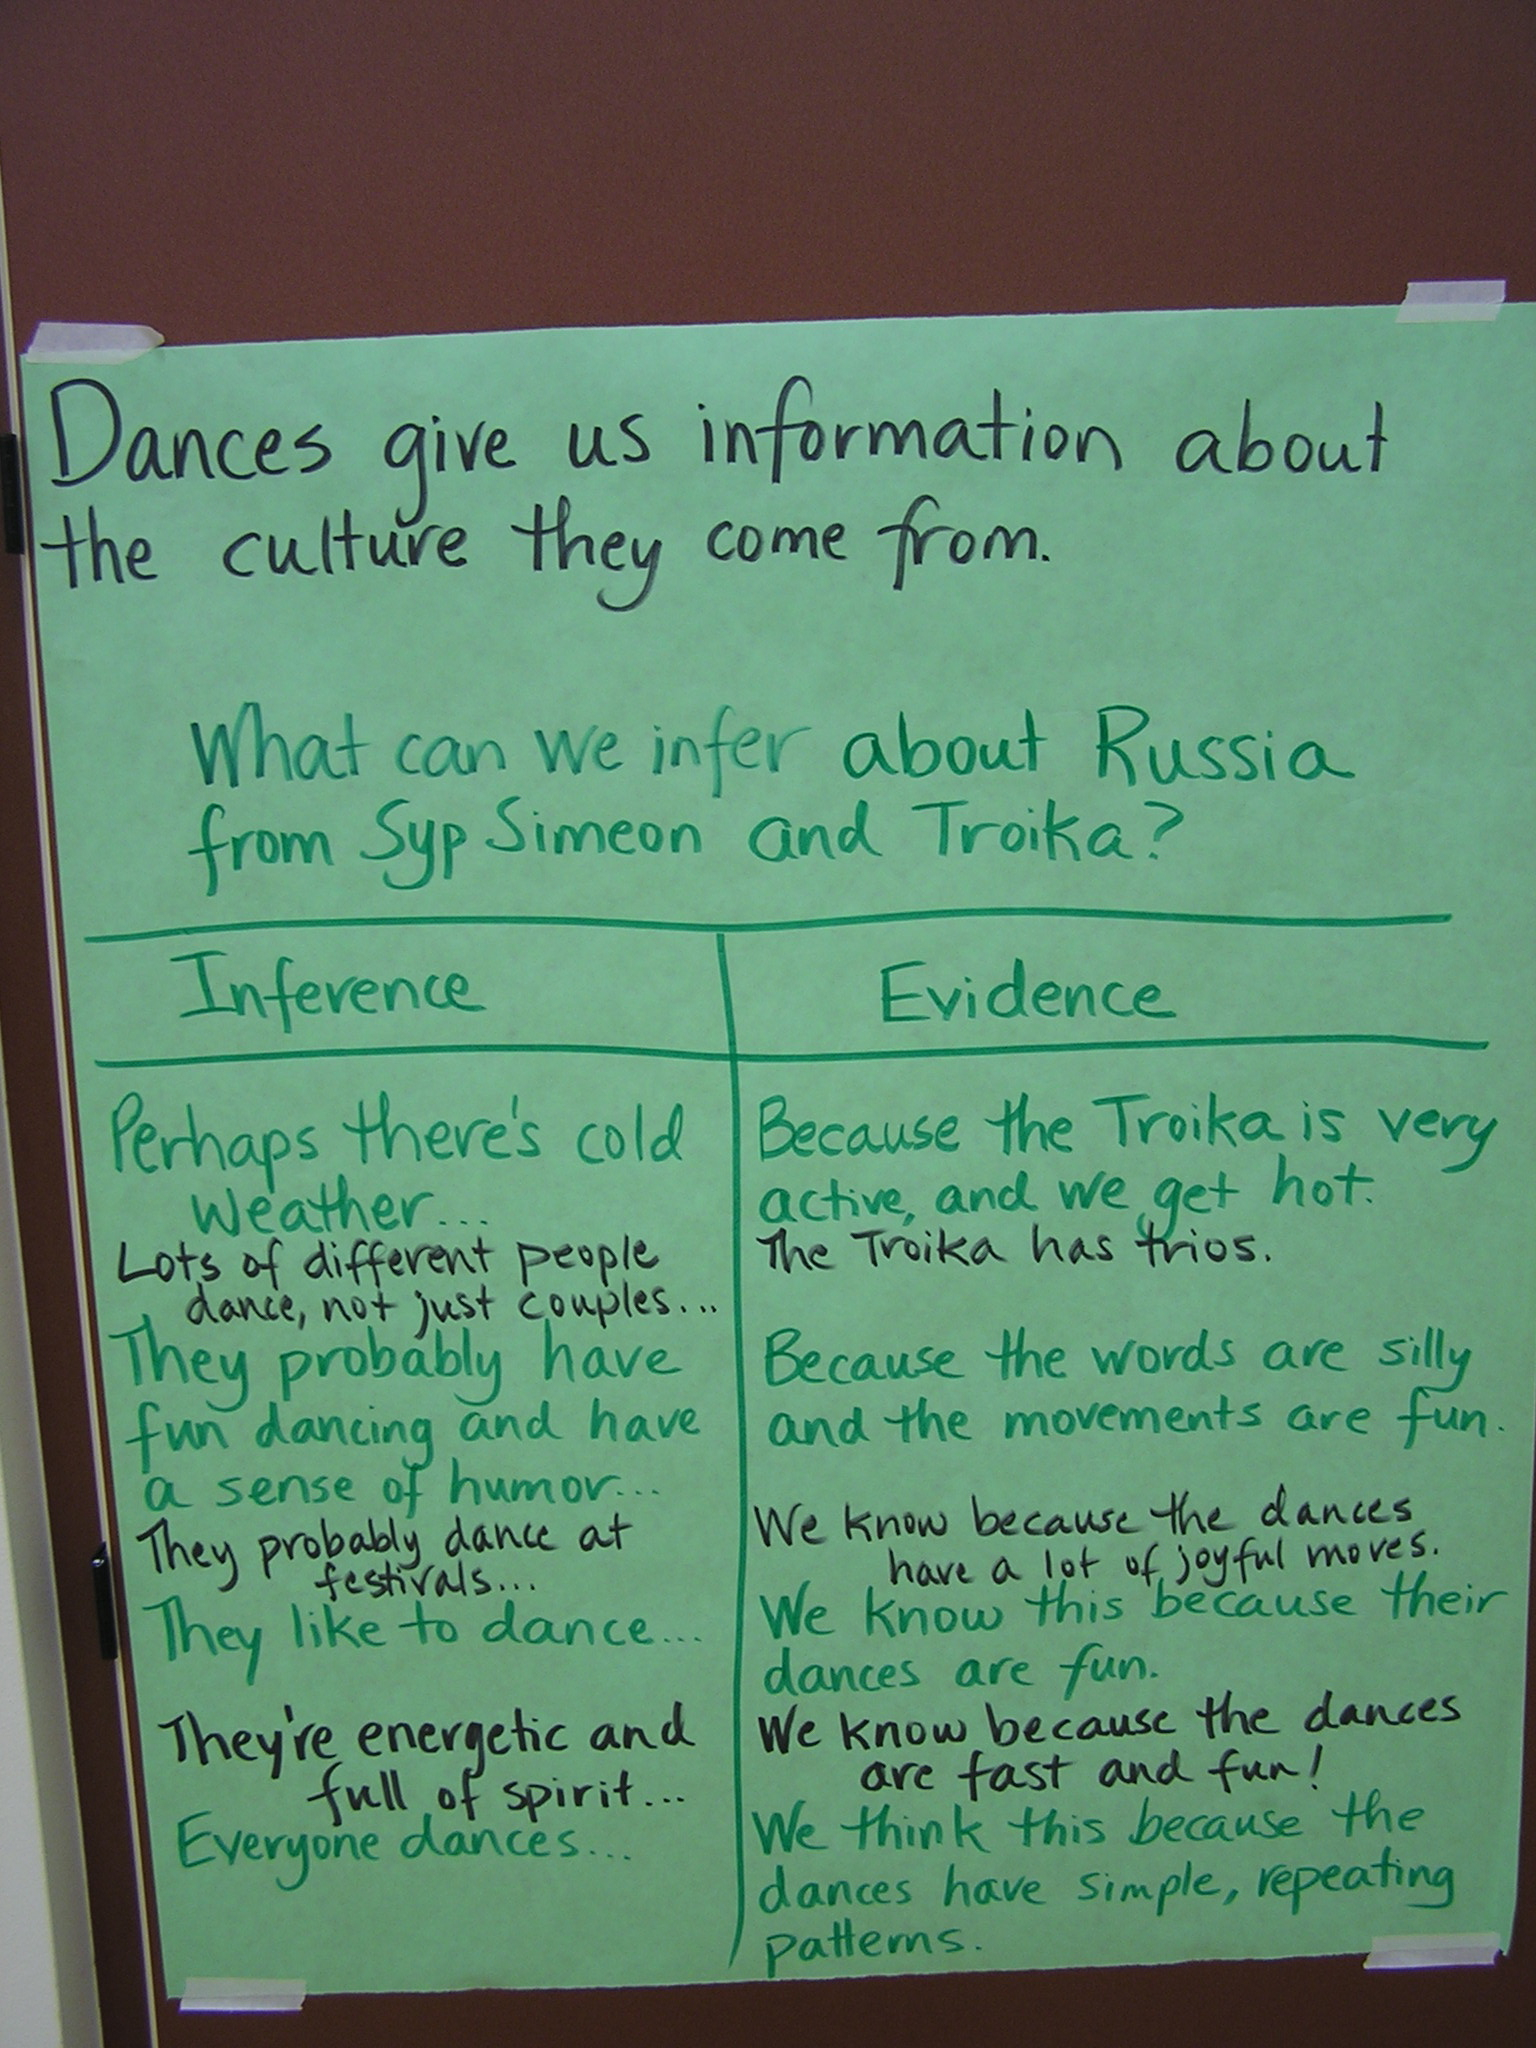 Dances give us information about
the culture they come from.
What can we infer about Russia
from Syp Simeon and Troika?
Inference
Evidence
Perhaps there's cold
weather...
Because the Troika is very
active, and we get hot.
Lots of different people
dance, not just couples...
The Troika has trios.
They probably have
fun dancing and have
a sense of humor...
Because the words are silly
and the movements are fun.
They probably dance at
festivals...
We know because the dances
have a lot of joyful moves.
They like to dance...
We know this because their
dances are fun.
They're energetic and
full of spirit...
We know because the dances
are fast and fun!
Everyone dances...
We think this because the
dances have simple, repeating
patterns.